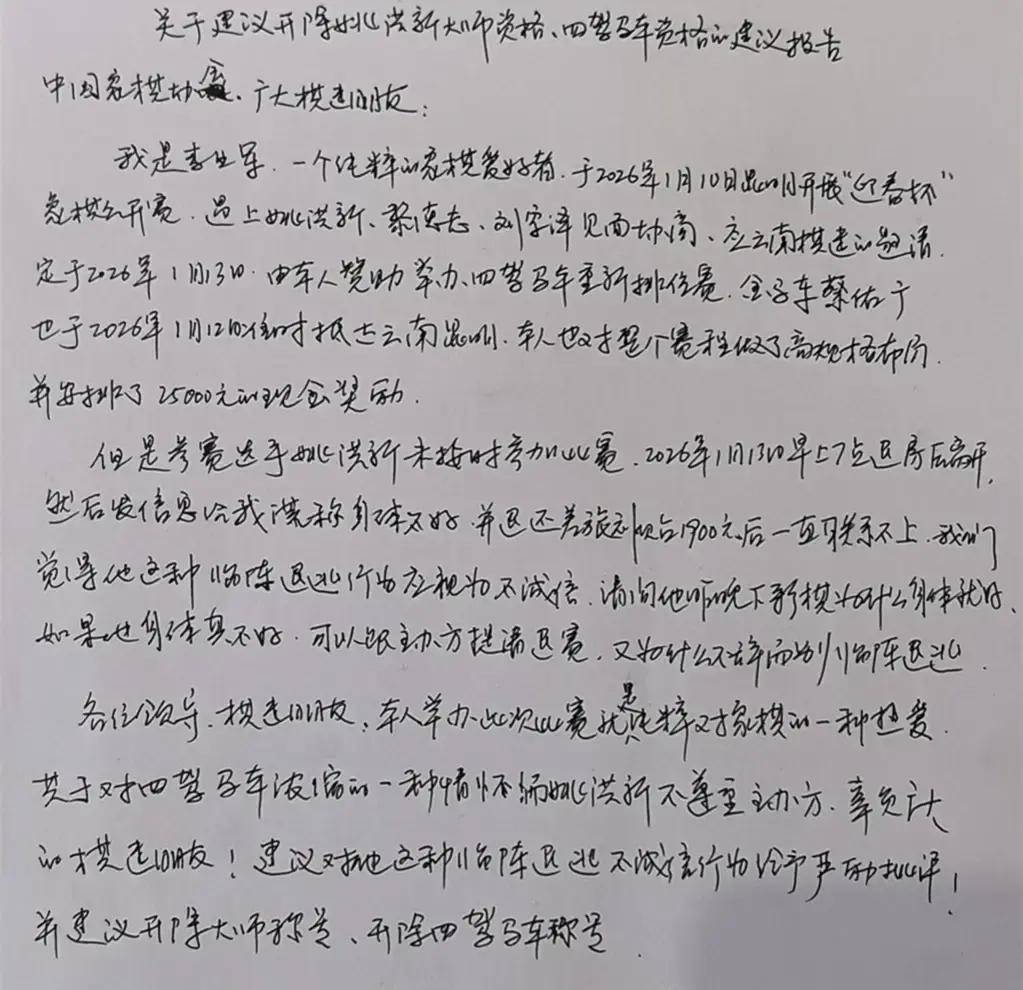 关于建议开除姚洪新大师资格、四驾马车资格的建议报告
中国象棋协会、广大棋迷朋友：
我是李业军、一个纯粹的象棋爱好者、于2026年1月10日昆明开展“迎春杯”
象棋公开赛、遇上姚洪新、黎德志、刘宇泽见面协商、应云南棋迷的邀请、
定于2026年1月13日、由本人赞助举办、四驾马车重新排位赛、金子车蔡佑广
也于2026年1月12日准时抵达云南昆明、本人也对整个赛程做了高规格布局、
并安排了25000元的现金奖励、
但是参赛选手姚洪新未按时参加比赛、2026年1月13日早上7点退房后离开、
然后发信息给我谎称身体不好、并退还差旅补贴1900元后一直联系不上、我们
觉得他这种临阵退逃行为应视为不诚信、请问他昨晚下彩棋为什么身体就好、
如果他身体真不好、可以跟主办方提请退赛、又为什么不辞而别临阵退逃、
各位领导、棋迷朋友、本人举办此次比赛就是纯粹对象棋的一种热爱、
基于对四驾马车浓缩的一种情怀、而姚洪新不尊重主办方、辜负广大
的棋迷朋友！建议对他这种临阵退逃不诚信行为给予严励批评！
并建议开除大师称号、开除四驾马车称号、